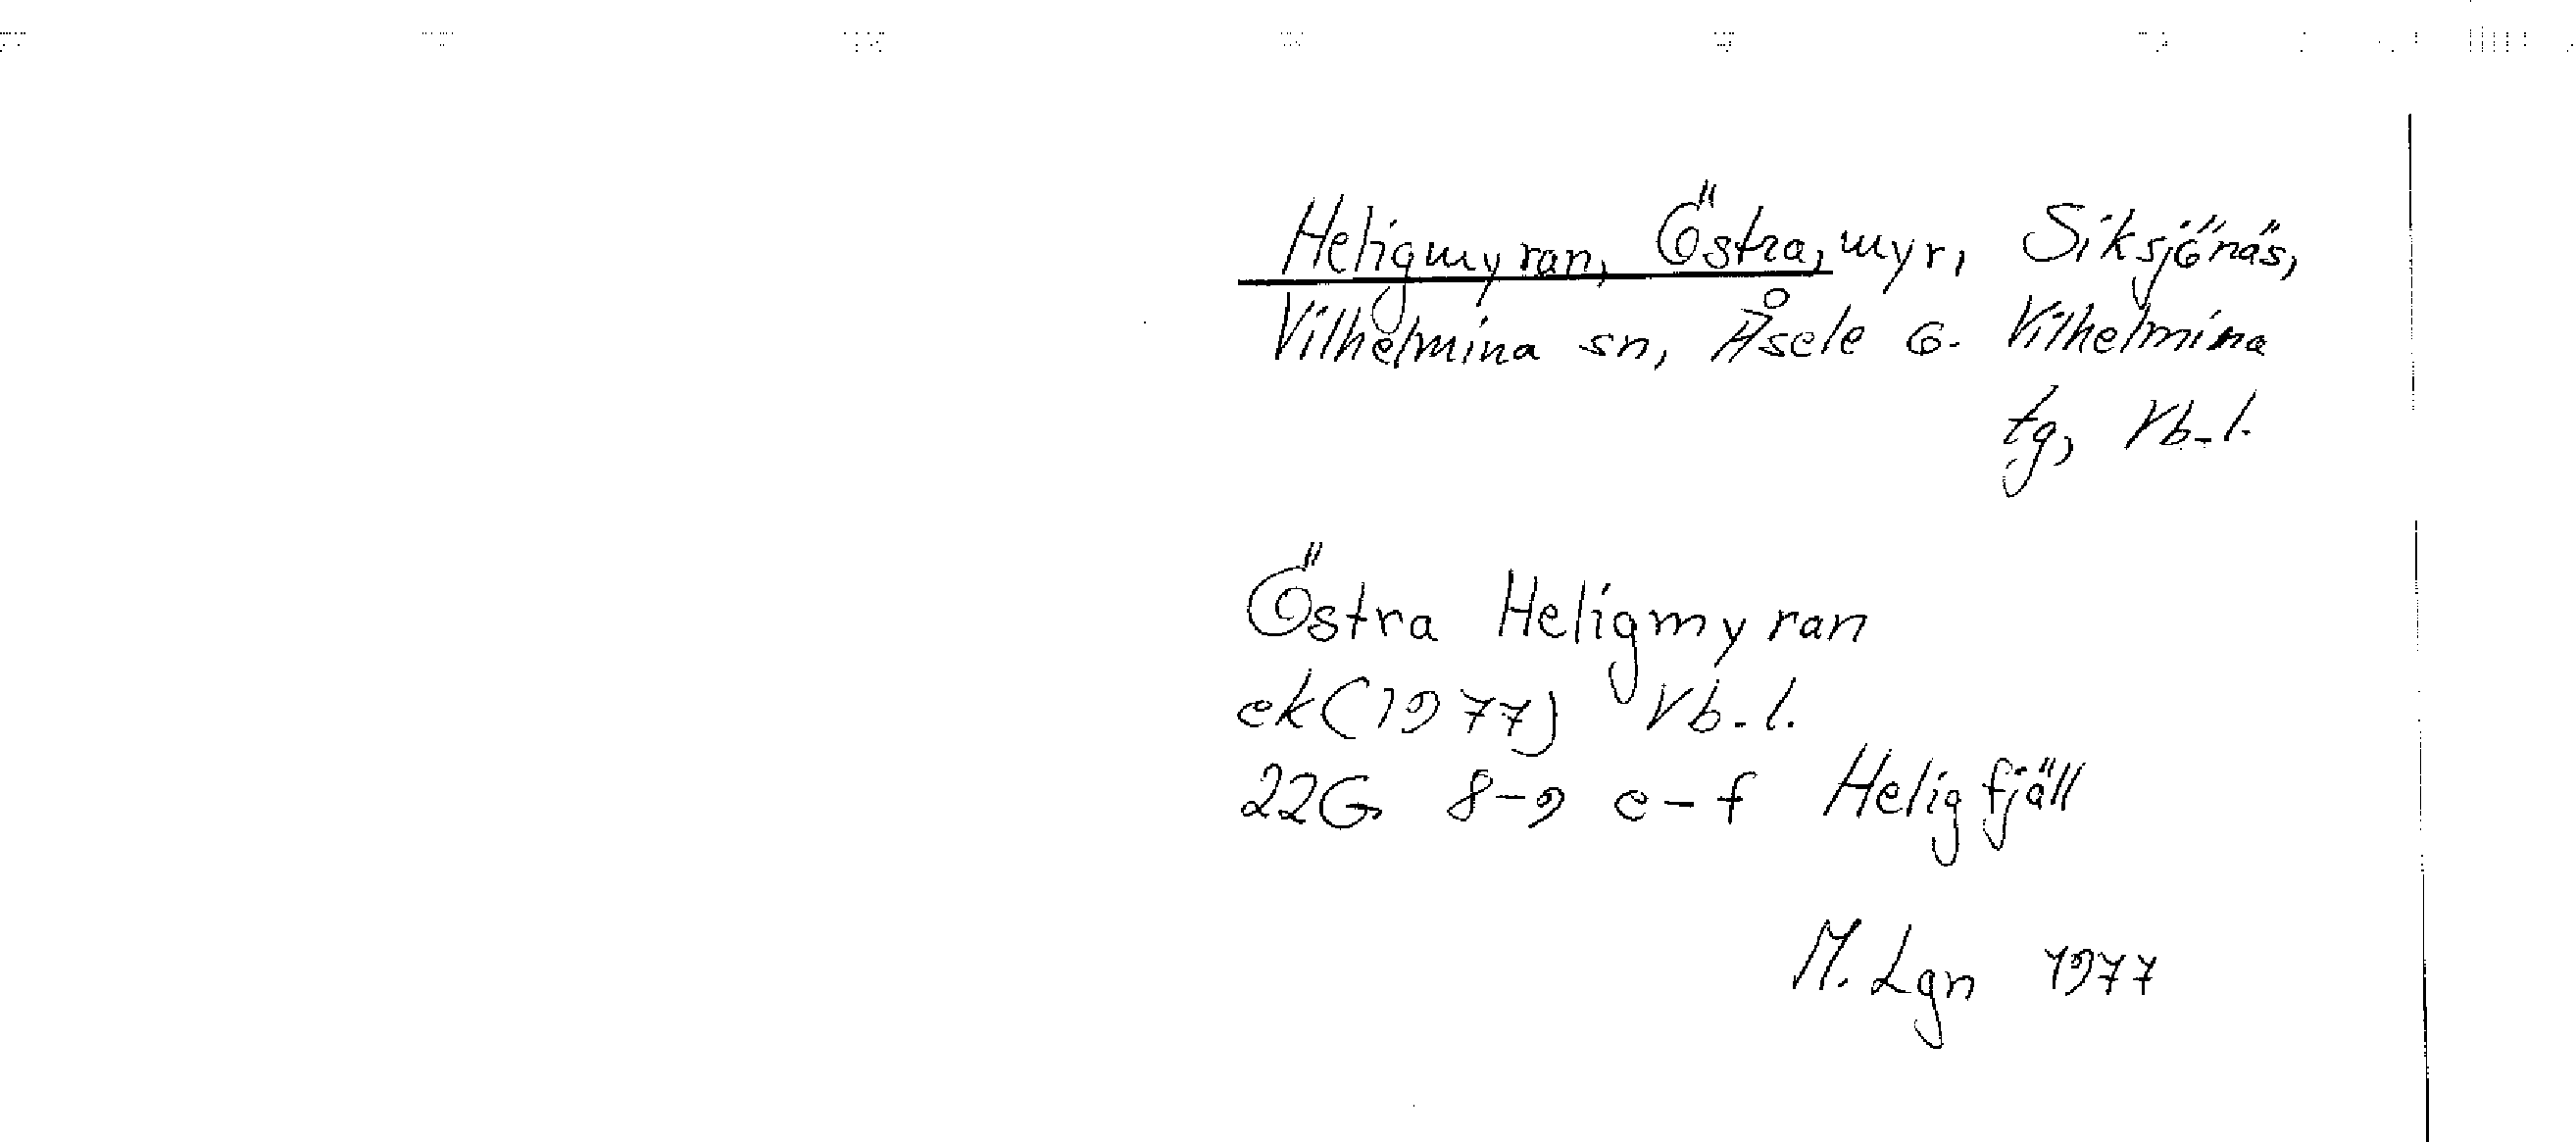 Heligmyran, Östra, myr, Siksjönäs,
Vilhelmina sn, Åsele o. Vilhelmina
tg, Vb. l.
Östra Heligmyran
ek (1977) Vb. l.
22G 8-9 e-f Heligfjäll
M. Lgn 1977